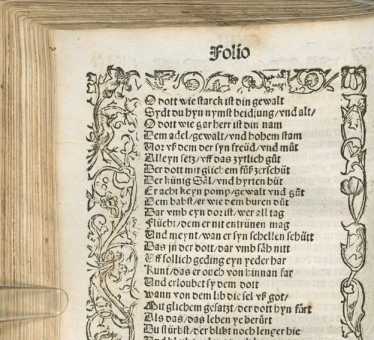 Folio
O dott wie starck ist din gewalt
Sydt du hyn nymst beid jung/vnd alt/
O dott wie gar herr ist din nam
Dem adel/gewalt/vnd hohem stam
Vor vß dem der syn freüd/vnd můt
Alleyn setz/vff das zytlich gůt
Der dott mit glichem fůß zerschüt
Der künig Sål/vnd hyrten hüt
Er acht keyn pomp/gewalt vnd gůt
Dem babst/er wie dem buren důt
Dar vmb eyn dor ist/wer all tag
Flücht/dem er nit entrünen mag
Vnd meynt/wan er syn schellen schütt
Das jn der dott/dar vmb såh nitt
Vff sollich geding eyn yeder har
Kunt/das er ouch von hinnan far
Vnd erloubet sy dem dott
Wann von dem lib die sel vß got/
Mit glichem gesatzt/der dott hyn fůrt
Als das/das leben ye berůrt
Du stürbst/der blibt noch lenger hie